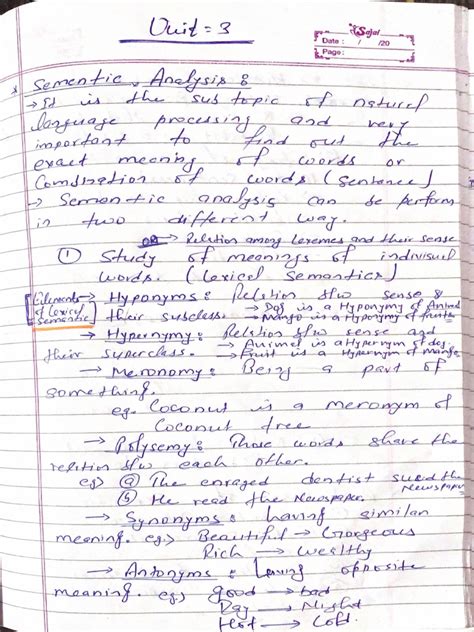 Unit = 3
Sajal
Date : / /20
Page:
* Sementic Analysis :
→ It is the sub topic of natural
language processing and very
important to find out the
exact meaning of words or
Combination of words (Sentence)
→ Semantic analysis can be perform
in two different way.
OR → Reletion among Lexemes and their sense
① Study of meanings of indivisual
words. (Lexical Semantics)
Elements of Lexical Semantic
→ Hyponyms : Reletion b/w sense &
their subclass. → Dog is a Hyponymy of Animal
→ Mango is a Hyponymy of fruits
→ Hypernymy : Reletion b/w sense and
their superclass. → Animel is a Hypernym of dog.
→ Fruit is a Hypernym of mango
→ Meronomy : Being a part of
something.
eg. Coconut is a meronym of
Coconut tree
→ Polysemy : Those words share the
reletion b/w each other.
eg) ⓐ The enraged dentist sued the Newspaper
ⓑ He read the Newspaper.
→ Synonyms : having similar
meaning. eg.) Beautiful → Gorgeous
Rich → Wealthy
→ Antonyms : Having opposite
meaning. eg.) good → bad
Day → Night
Hot → Cold.